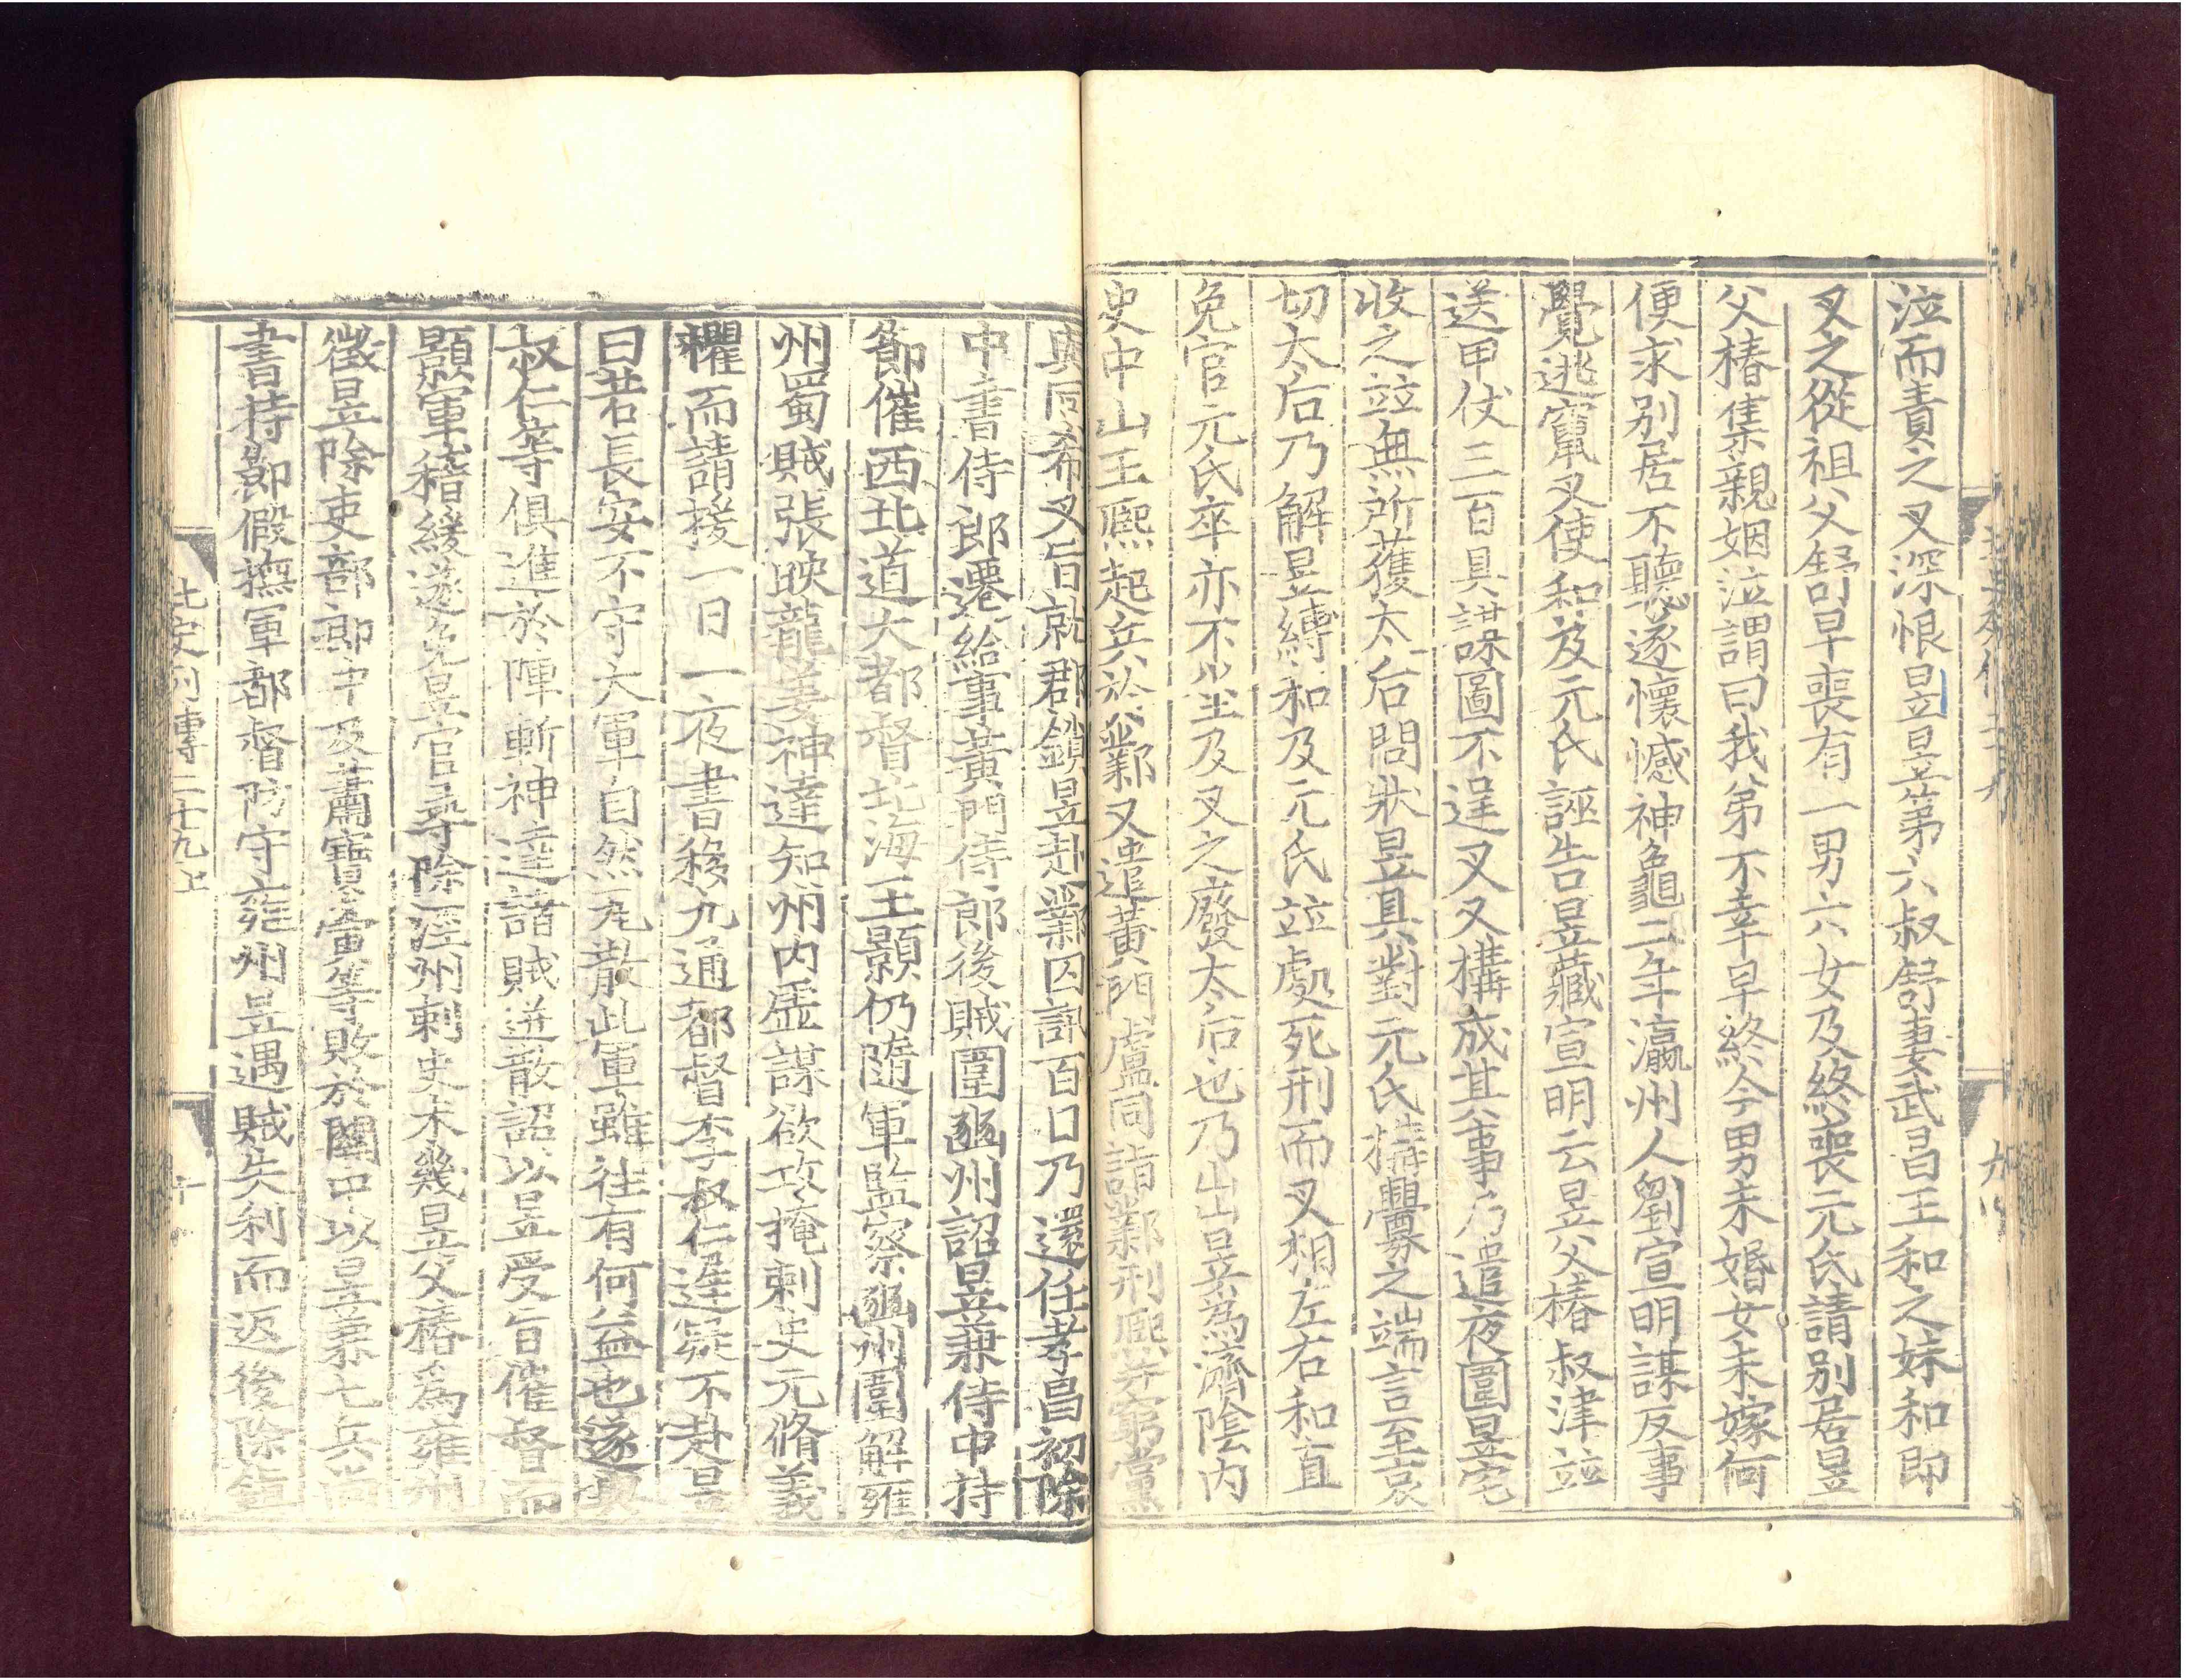 泣而責之叉深恨昱昱第六叔舒妻武昌王和之妹和即
叉之從祖父舒早喪有一男六女及終喪元氏請別居昱
父椿集親姻泣謂曰我弟不幸早終今男未婚女未嫁何
便求別居不聽遂懷憾神龜二年瀛州人劉宣明謀反事
覺逃竄叉使和及元氏誣告昱藏宣明云昱父椿叔津竝
送甲仗三百具謀圖不逞叉又構成其事乃遣夜圍昱宅
收之竝無所獲太后問狀昱具對元氏構釁之端言至哀
切太后乃解昱縛和及元氏竝處死刑而叉相左右和直
免官元氏卒亦不坐及叉之廢太后也乃出昱為濟陰內
史中山王熙起兵於鄴叉遣黃門盧同詣鄴刑熙并窮黨
與同希叉旨就郡鎖昱赴鄴囚訊百日乃還任孝昌初除
中書侍郎遷給事黃門侍郎後賊圍豳州詔昱兼侍中持
節催西北道大都督北海王顥仍隨軍監察豳州圍解雍
州蜀賊張映龍姜神達知州內虛謀欲攻掩刺史元脩義
懼而請援一日一夜書移九通都督李叔仁遲疑不赴昱
曰若長安不守大軍自然瓦散此軍雖往有何益也遂與
叔仁等俱進於陣斬神達諸賊迸散詔以昱受旨催督而
顥軍稽緩遂免昱官尋除涇州刺史未幾昱父椿為雍州
徵昱除吏部郎中及蕭寶夤等敗於關中以昱兼七兵尚
書持節假撫軍都督防守雍州昱遇賊失利而返後除鎮
北史列傳二十九上
十